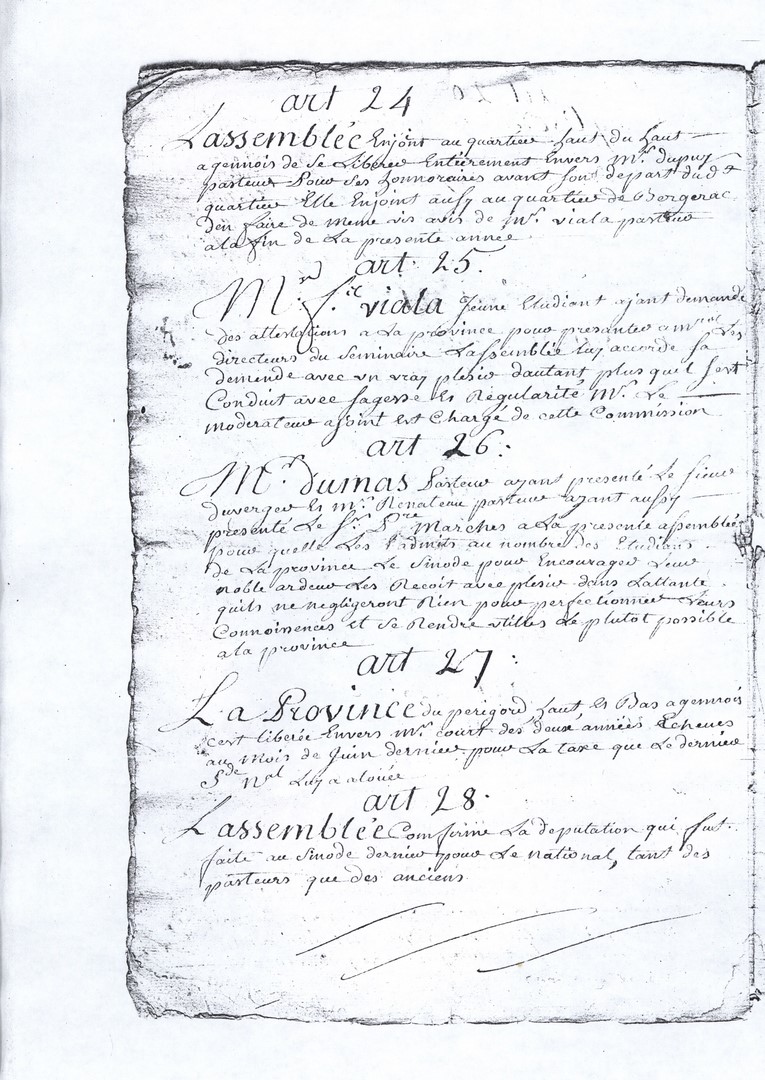 art 24
Lassemblée Enjoint au quartier haut du haut
agennois de se Liberer Entierement Envers Mr. dupuy
pasteur Pour ses honnoraires avant son depart dud t
quartier Elle Enjoint aussy au quartier de Bergerac
d'en faire de meme vis avis de mr. viala pasteur
a la fin de La presente année
art. 25.
Mr. viala Jeune Etudiant ajant demandé
des attestations a La province pour presenter a mrs. Les
directeurs du Seminaire Lassemblée luy accorde sa
demende avec vn vray plesir dautant plus quil sest
Conduit avec sagesse Et Regularité Mr. Le
moderateur ajoint Est Chargé de cette Commission
art 26:
Mr. dumas Pasteur ayant presenté Le sieur
duverger Et mr. Renateau pasteur ayant aussy
presenté Le Sr. Pre Marches a La presente assemblée
pour quelle Les admits au nombre des Etudians
de La province Le Sinode pour Encourager Leur
noble ardeur Les Recoit avec plesir dans Lattante
quils ne negligeront Rien pour perfectionner Leurs
Connoissences et se Rendre vtilles Le plutot possible
a la province
art 27:
La Province du perigord haut Et Bas agennois
cest liberée Envers mr. court des deux années Echeues
au mois de Juin dernier pour La taxe que Le dernier
Sde Nal Luy a alouée
art 28.
Lassemblée Comfirme La deputation qui fut
faite au Sinode dernier pour Le national, tant des
pasteurs que des anciens